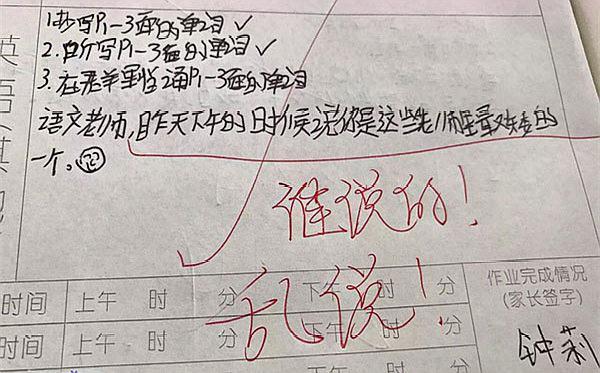 1.抄写P1-3面的单词 ✓
2.听写P1-3面的单词 ✓
3.在 2 P1-3面的单词
语文老师,昨天下午的时候说你是这些老师里最矮的
一个。
谁说的!
乱说!
英语其
时间 上午 时 分 下午 时 分
时间 上午 时 分 下午 时 分
作业完成情况
(家长签字)
钟莉